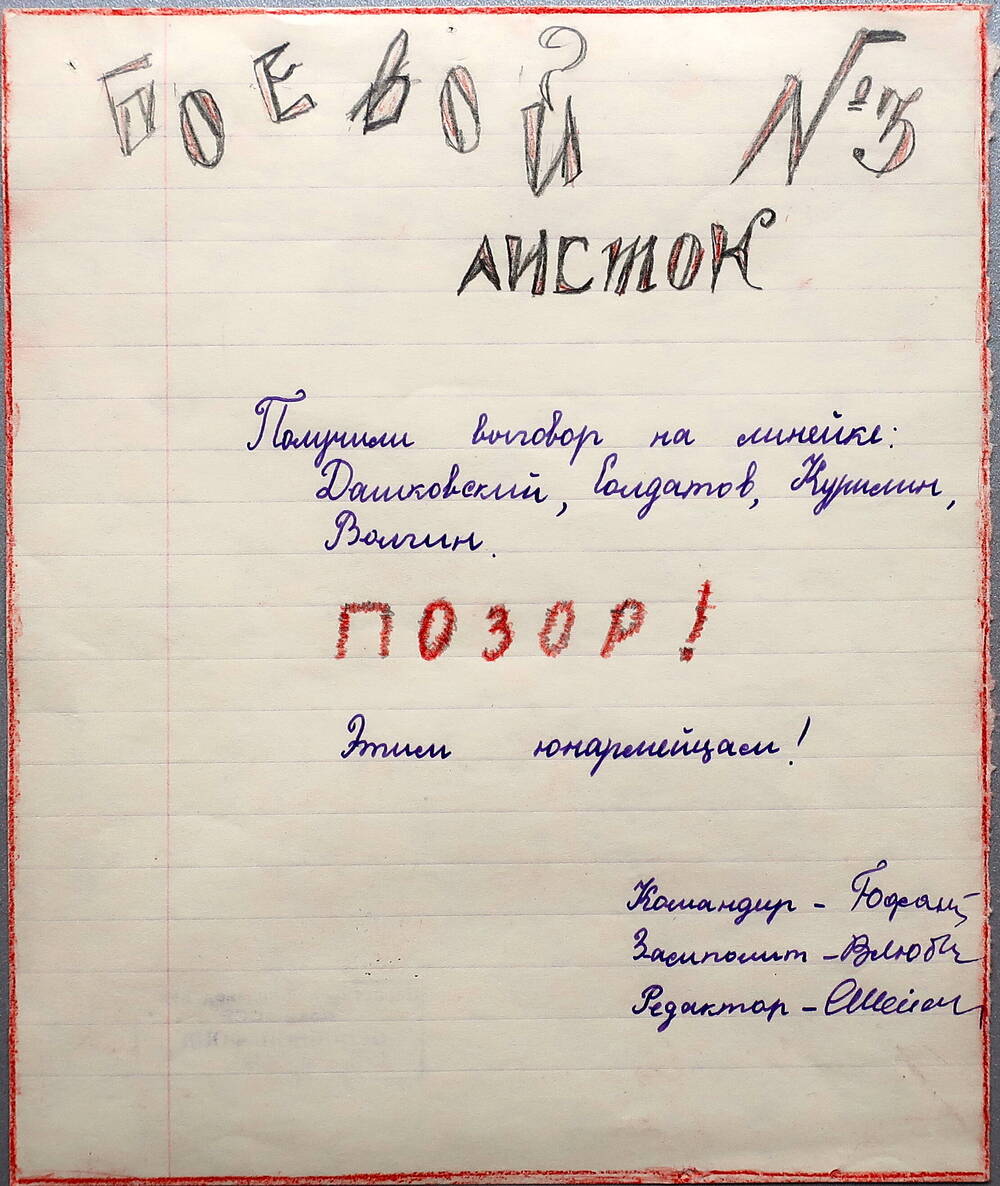 БОЕВОЙ №3
ЛИСТОК
Получили выговор на линейке:
Дашковский, Солдатов, Курилин,
Волгин.
ПОЗОР!
Этим юнармейцам!
Командир -
Замполит -
Редактор -